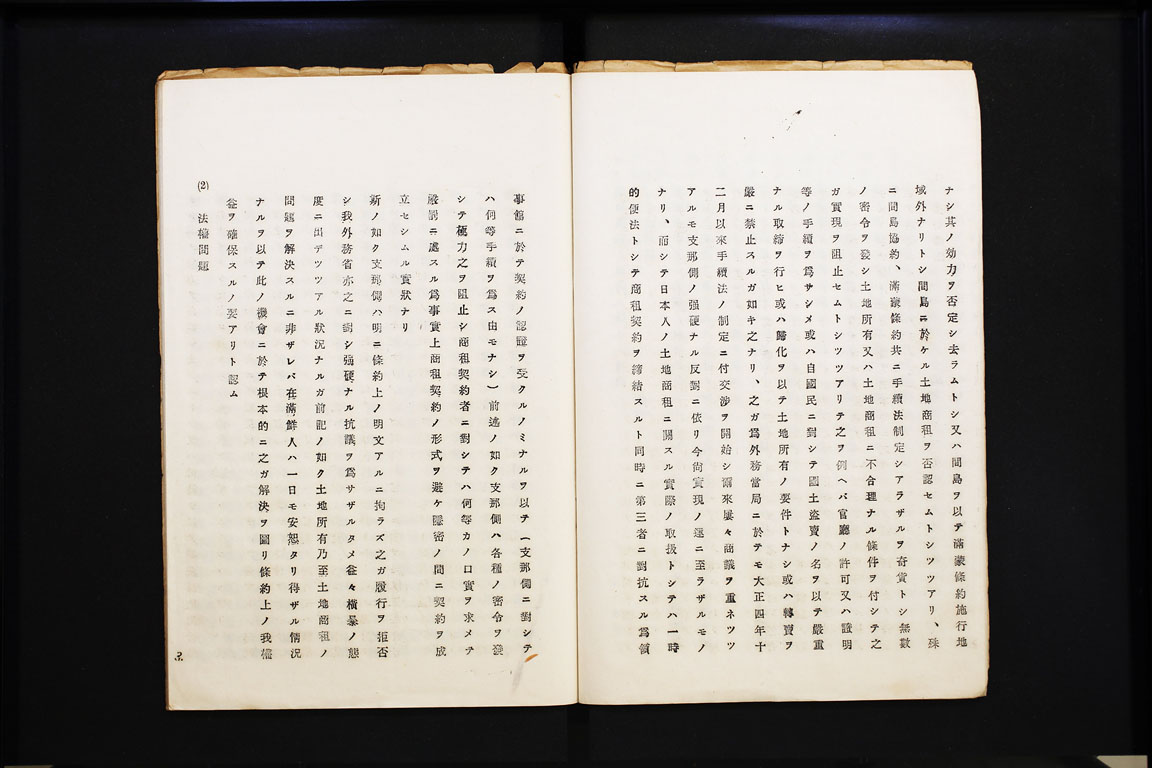 ナシ其ノ効力ヲ否定シ去ラムトシ又ハ間島ヲ以テ滿蒙條約施行地
域外ナリトシ間島ニ於ケル土地商租ヲ否認セムトシツツアリ、殊
ニ間島協約、滿蒙條約共ニ手續法制定シアラザルヲ奇貨トシ無數
ノ密令ヲ發シ土地所有又ハ土地商租ニ不合理ナル條件ヲ付シテ之
ガ實現ヲ阻止セムトシツツアリテ之ヲ例ヘバ官廳ノ許可又ハ證明
等ノ手續ヲ爲サシメ或ハ自國民ニ對シテ國土盜賣ノ名ヲ以テ嚴重
ナル取締ヲ行ヒ或ハ歸化ヲ以テ土地所有ノ要件トナシ或ハ轉賣ヲ
嚴ニ禁止スルガ如キ之ナリ、之ガ爲外務當局ニ於テモ大正四年十
二月以來手續法ノ制定ニ付交渉ヲ開始シ爾來屢々商議ヲ重ネツツ
アルモ支那側ノ强硬ナル反對ニ依リ今尙實現ノ運ニ至ラザルモノ
ナリ、而シテ日本人ノ土地商租ニ關スル實際ノ取扱トシテハ一時
的便法トシテ商租契約ヲ締結スルト同時ニ第三者ニ對抗スル爲領
事館ニ於テ契約ノ認證ヲ受クルノミナルヲ以テ(支那側ニ對シテ
ハ何等手續ヲ爲ス由モナシ)前述ノ如ク支那側ハ各種ノ密令ヲ發
シテ極力之ヲ阻止シ商租契約者ニ對シテハ何等カノ口實ヲ求メテ
嚴罰ニ處スル爲事實上商租契約ノ形式ヲ避ケ隱密ノ間ニ契約ヲ成
立セシムル實狀ナリ
斯ノ如ク支那側ハ明ニ條約上ノ明文アルニ拘ラズ之ガ履行ヲ拒否
シ我外務省亦之ニ對シ强硬ナル抗議ヲ爲サザルタメ益々横暴ノ態
度ニ出デツツアル狀況ナルガ前記ノ如ク土地所有乃至土地商租ノ
問題ヲ解決スルニ非ザレバ在滿鮮人ハ一日モ安恕タリ得ザル情況
ナルヲ以テ此ノ機會ニ於テ根本的ニ之ガ解決ヲ圖リ條約上ノ我權
益ヲ確保スルノ要アリト認ム
(2) 法權問題